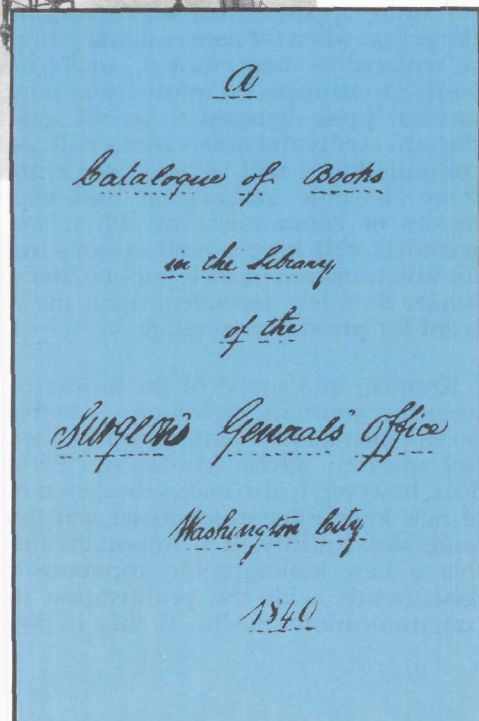 A
Catalogue of Books
in the Library
of the
Surgeons Generals' Office
Washington City
1840